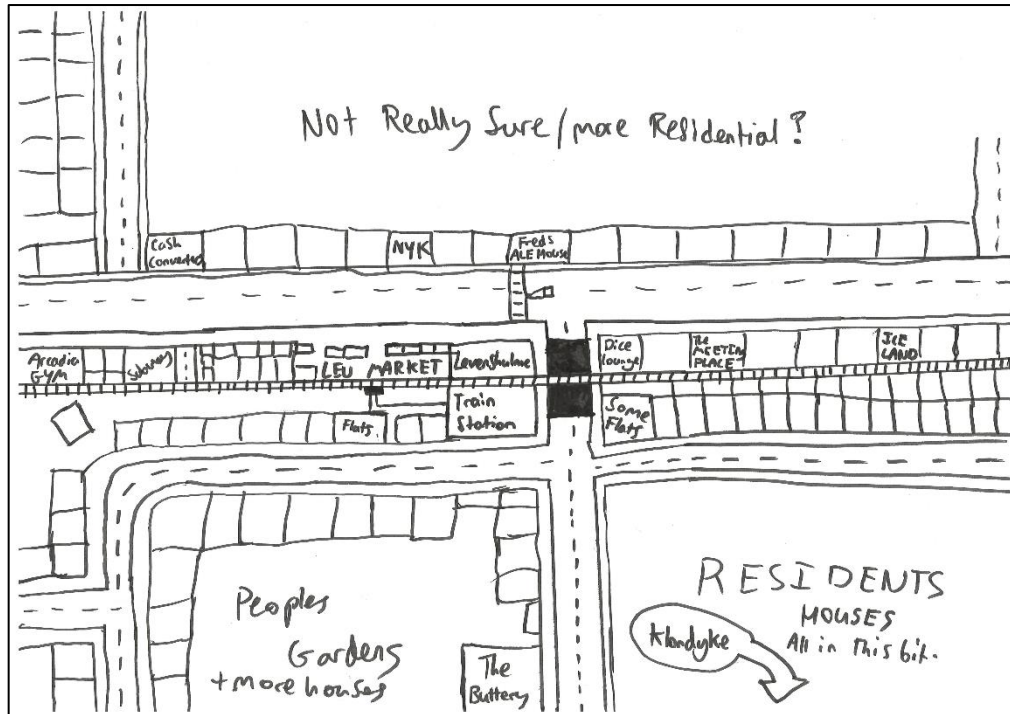 Not Really Sure/more Residential?
Cash
Converted
NYK
Freds
ALE House
Arcadia
GYM
Subway
LEV MARKET
Levenshulme
Train
Station
Dice
Lounge
The
MEETING
PLACE
ICE
LAND
Flats
Some
Flats
Peoples
Gardens
+ more houses
The
Buttery
RESIDENTS
HOUSES
All in This bit.
Klondyke